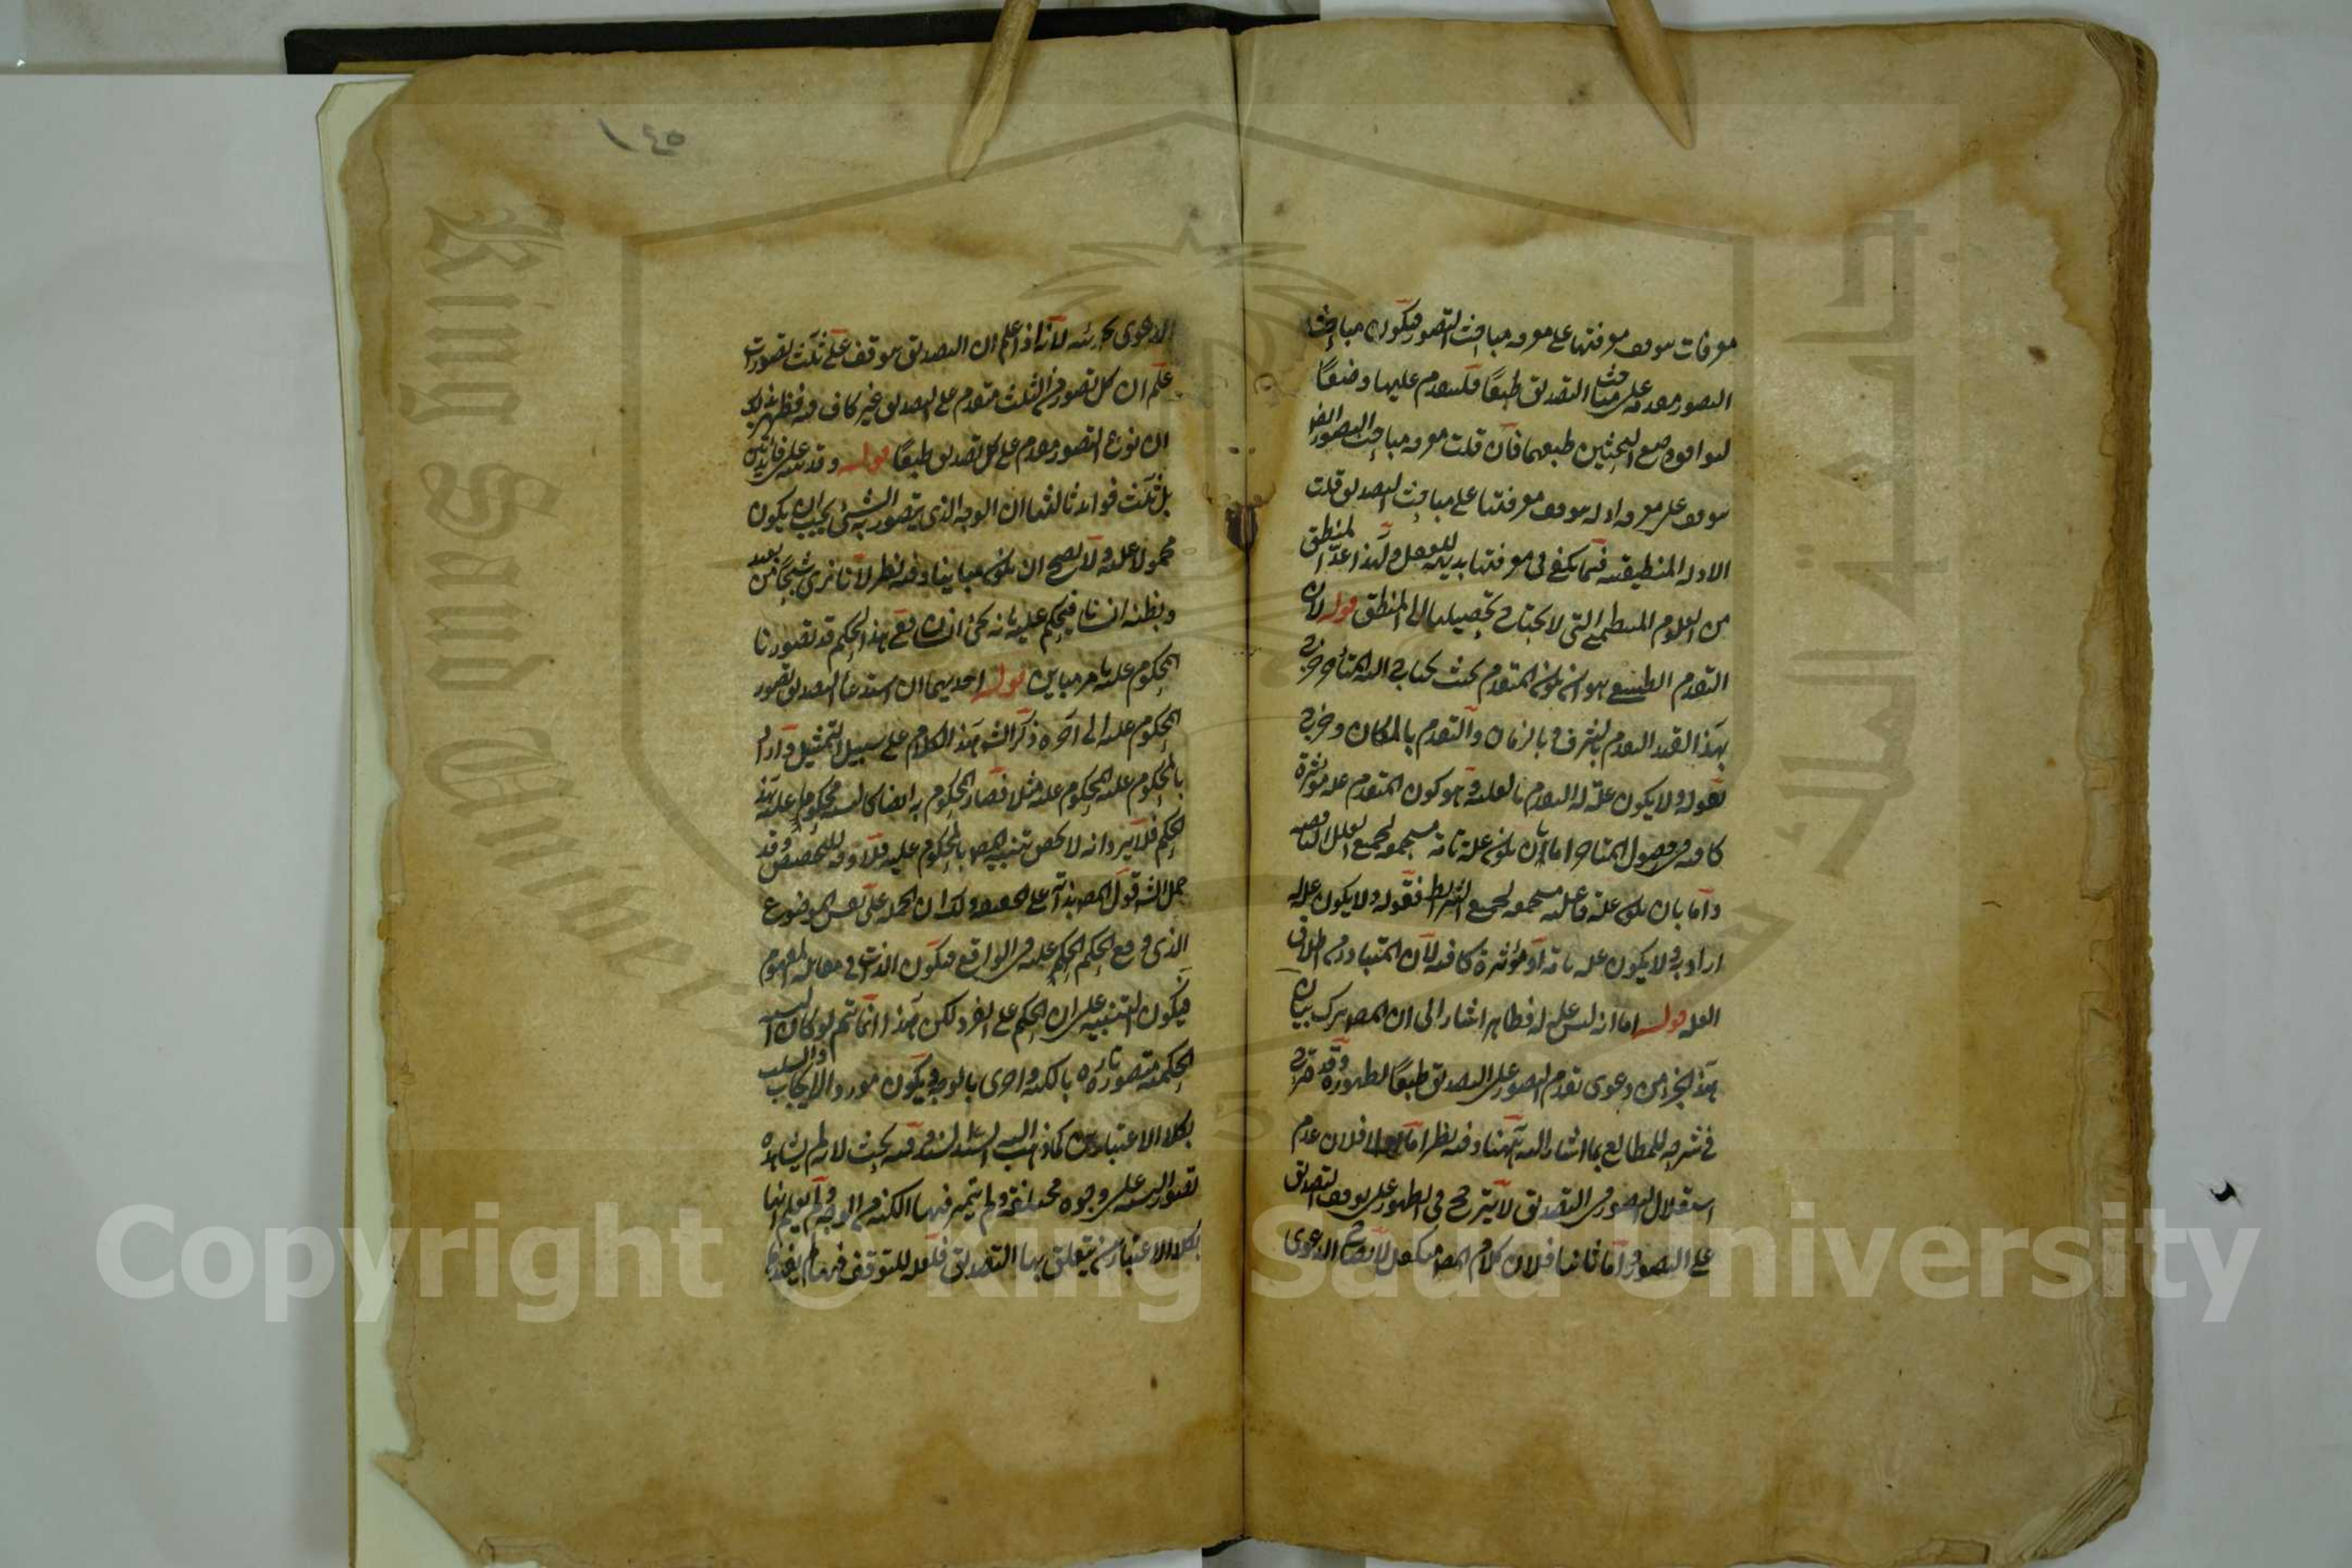 معرفات يتوقف معرفتها على معرفة مباحث التصور فيكون مباحث
التصور متقدمة على مباحث التصديق طبعًا فليتقدم عليها وضعًا
ليوافق وضع البحثين طبعهما فان قلت معرفة مباحث التصور ايضا
يتوقف على معرفة ادلة يتوقف معرفتها على مباحث التصديق قلت
الادلة المنطقية فيما يكفي في معرفتها بديهة العقل ولهذا عد المنطق
من العلوم التي لا يحتاج تحصيلها الى المنطق قوله لان
التقدم الطبيعي هو ان يكون المتقدم بحيث يحتاج اليه المتأخر خرج
بهذا القيد التقدم بالشرف وبالزمان والتقدم بالمكان وخرج
بقوله ولا يكون علة له التقدم بالعلية وهو كون المتقدم علة مؤثرة
كافية في حصول المتأخر اما بان يكون علة تامة مستجمعة لجميع العلل الناقصة
واما بان يكون علة فاعلية مستجمعة لجميع الشرائط فقوله ولا يكون علة له
اراد به لا يكون علة تامة او مؤثرة كافية لان المتبادر من اطلاق
العلة قوله اما انه ليس علة له فظاهر اشار الى ان المص ترك بيان
هذا الجزء من دعوى تقدم التصور على التصديق طبعًا لظهوره وقد صرح
في شرحه للمطالع بما اشار اليه ههنا وفيه نظر اما اولا فلان عدم
استقلال التصور في التصديق لا يترجح في الظهور على توقف التصديق
على التصور واما ثانيا فلان كلام المص متكفل لاثبات الدعوى
١٤٥
الدعوى بجزئيه لانه اذا علم ان التصديق موقوف على ثلث تصورات
علم ان كل تصور من الثلث متقدم على التصديق غير كاف فيه فظهر بذلك
ان نوع التصور متقدم على كل تصديق طبعًا قوله وقد نبه على فائدتين
بل ثلث فوائد ثالثها ان الوجه الذي يتصور به الشيء يجب ان يكون
محمولا عليه ولا يصح ان يكون مباينا وفيه نظر لانا نرى شبحًا من بعيد
ونظنه انسانا فيحكم عليه بانه انسان فمع هذا الحكم قد تصورنا
المحكوم عليه بامر مباين قوله احديهما ان استدعاء التصديق تصور
المحكوم عليه الى آخره ذكر الش هذا الكلام على سبيل التمثيل واراد
بالمحكوم عليه المحكوم عليه مثلا فصار المحكوم به ايضا كالمحكوم عليه بهذا
الحكم فلا يرد انه لا يخص تنبيه المص بالمحكوم عليه فلا وجه للتخصيص وقد
حمل الش قول المص بذاته على الحقيقة ولك ان تحمله على نفس الموضوع
الذي وقع الحكم عليه في الواقع فيكون الذات في مقابلة المفهوم
فيكون التنبيه على ان الحكم على الفرد لكن هذا انما يتم لو كان النسبة
الحكمية متصورة تارة بالكنه واخرى بالوجه ويكون مورد الايجاب والسلب
بكلا الاعتبارين كما ذهب اليه السيد السند وفيه بحث لانه لم يشتهر
تصور النسبة على وجوه مختلفة ولم يتميز فيها الكنه من الوجه ولم يعلم انها
بكلا الاعتبارين يتعلق بها التصديق فلعله للتوقف فيهما لم يتعرض
Copyright © King Saud University